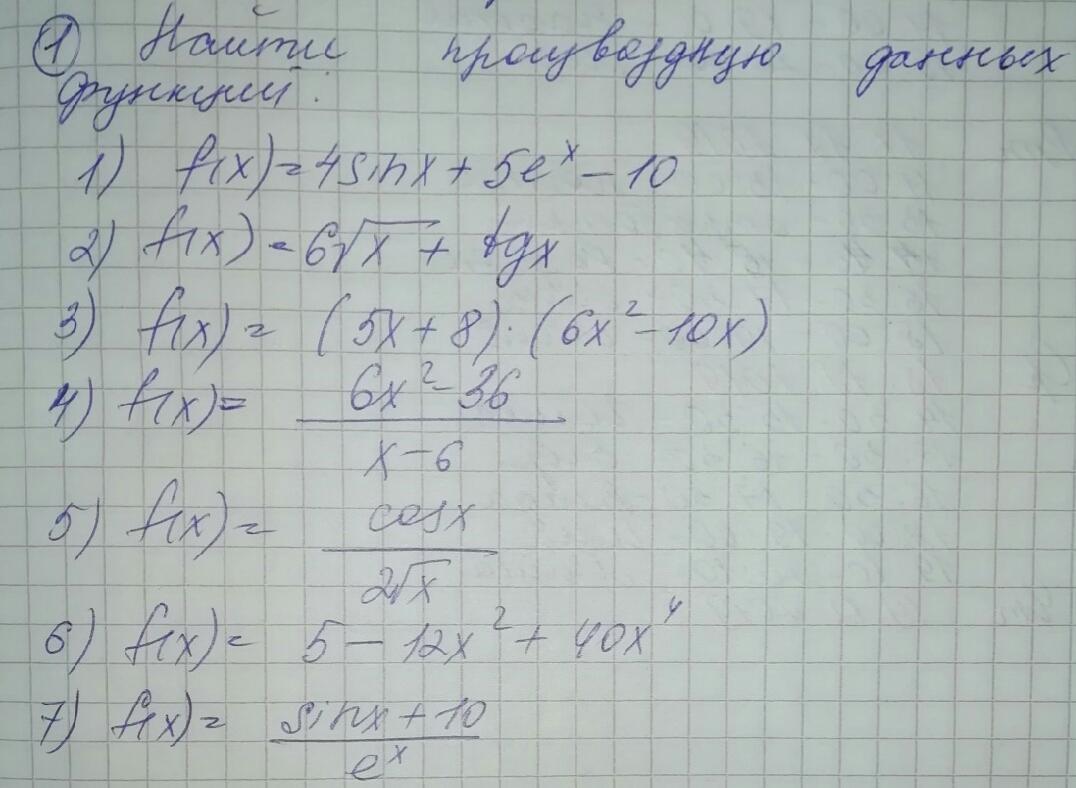 ① Найти производную данных
функций:
1) f(x) = 4sinx + 5eˣ – 10
2) f(x) = 6√x + tgx
3) f(x) = (5x + 8)·(6x² – 10x)
4) f(x) = (6x² – 36)/(x – 6)
5) f(x) = cosx/(2√x)
6) f(x) = 5 – 12x² + 40x⁴
7) f(x) = (sinx + 10)/eˣ